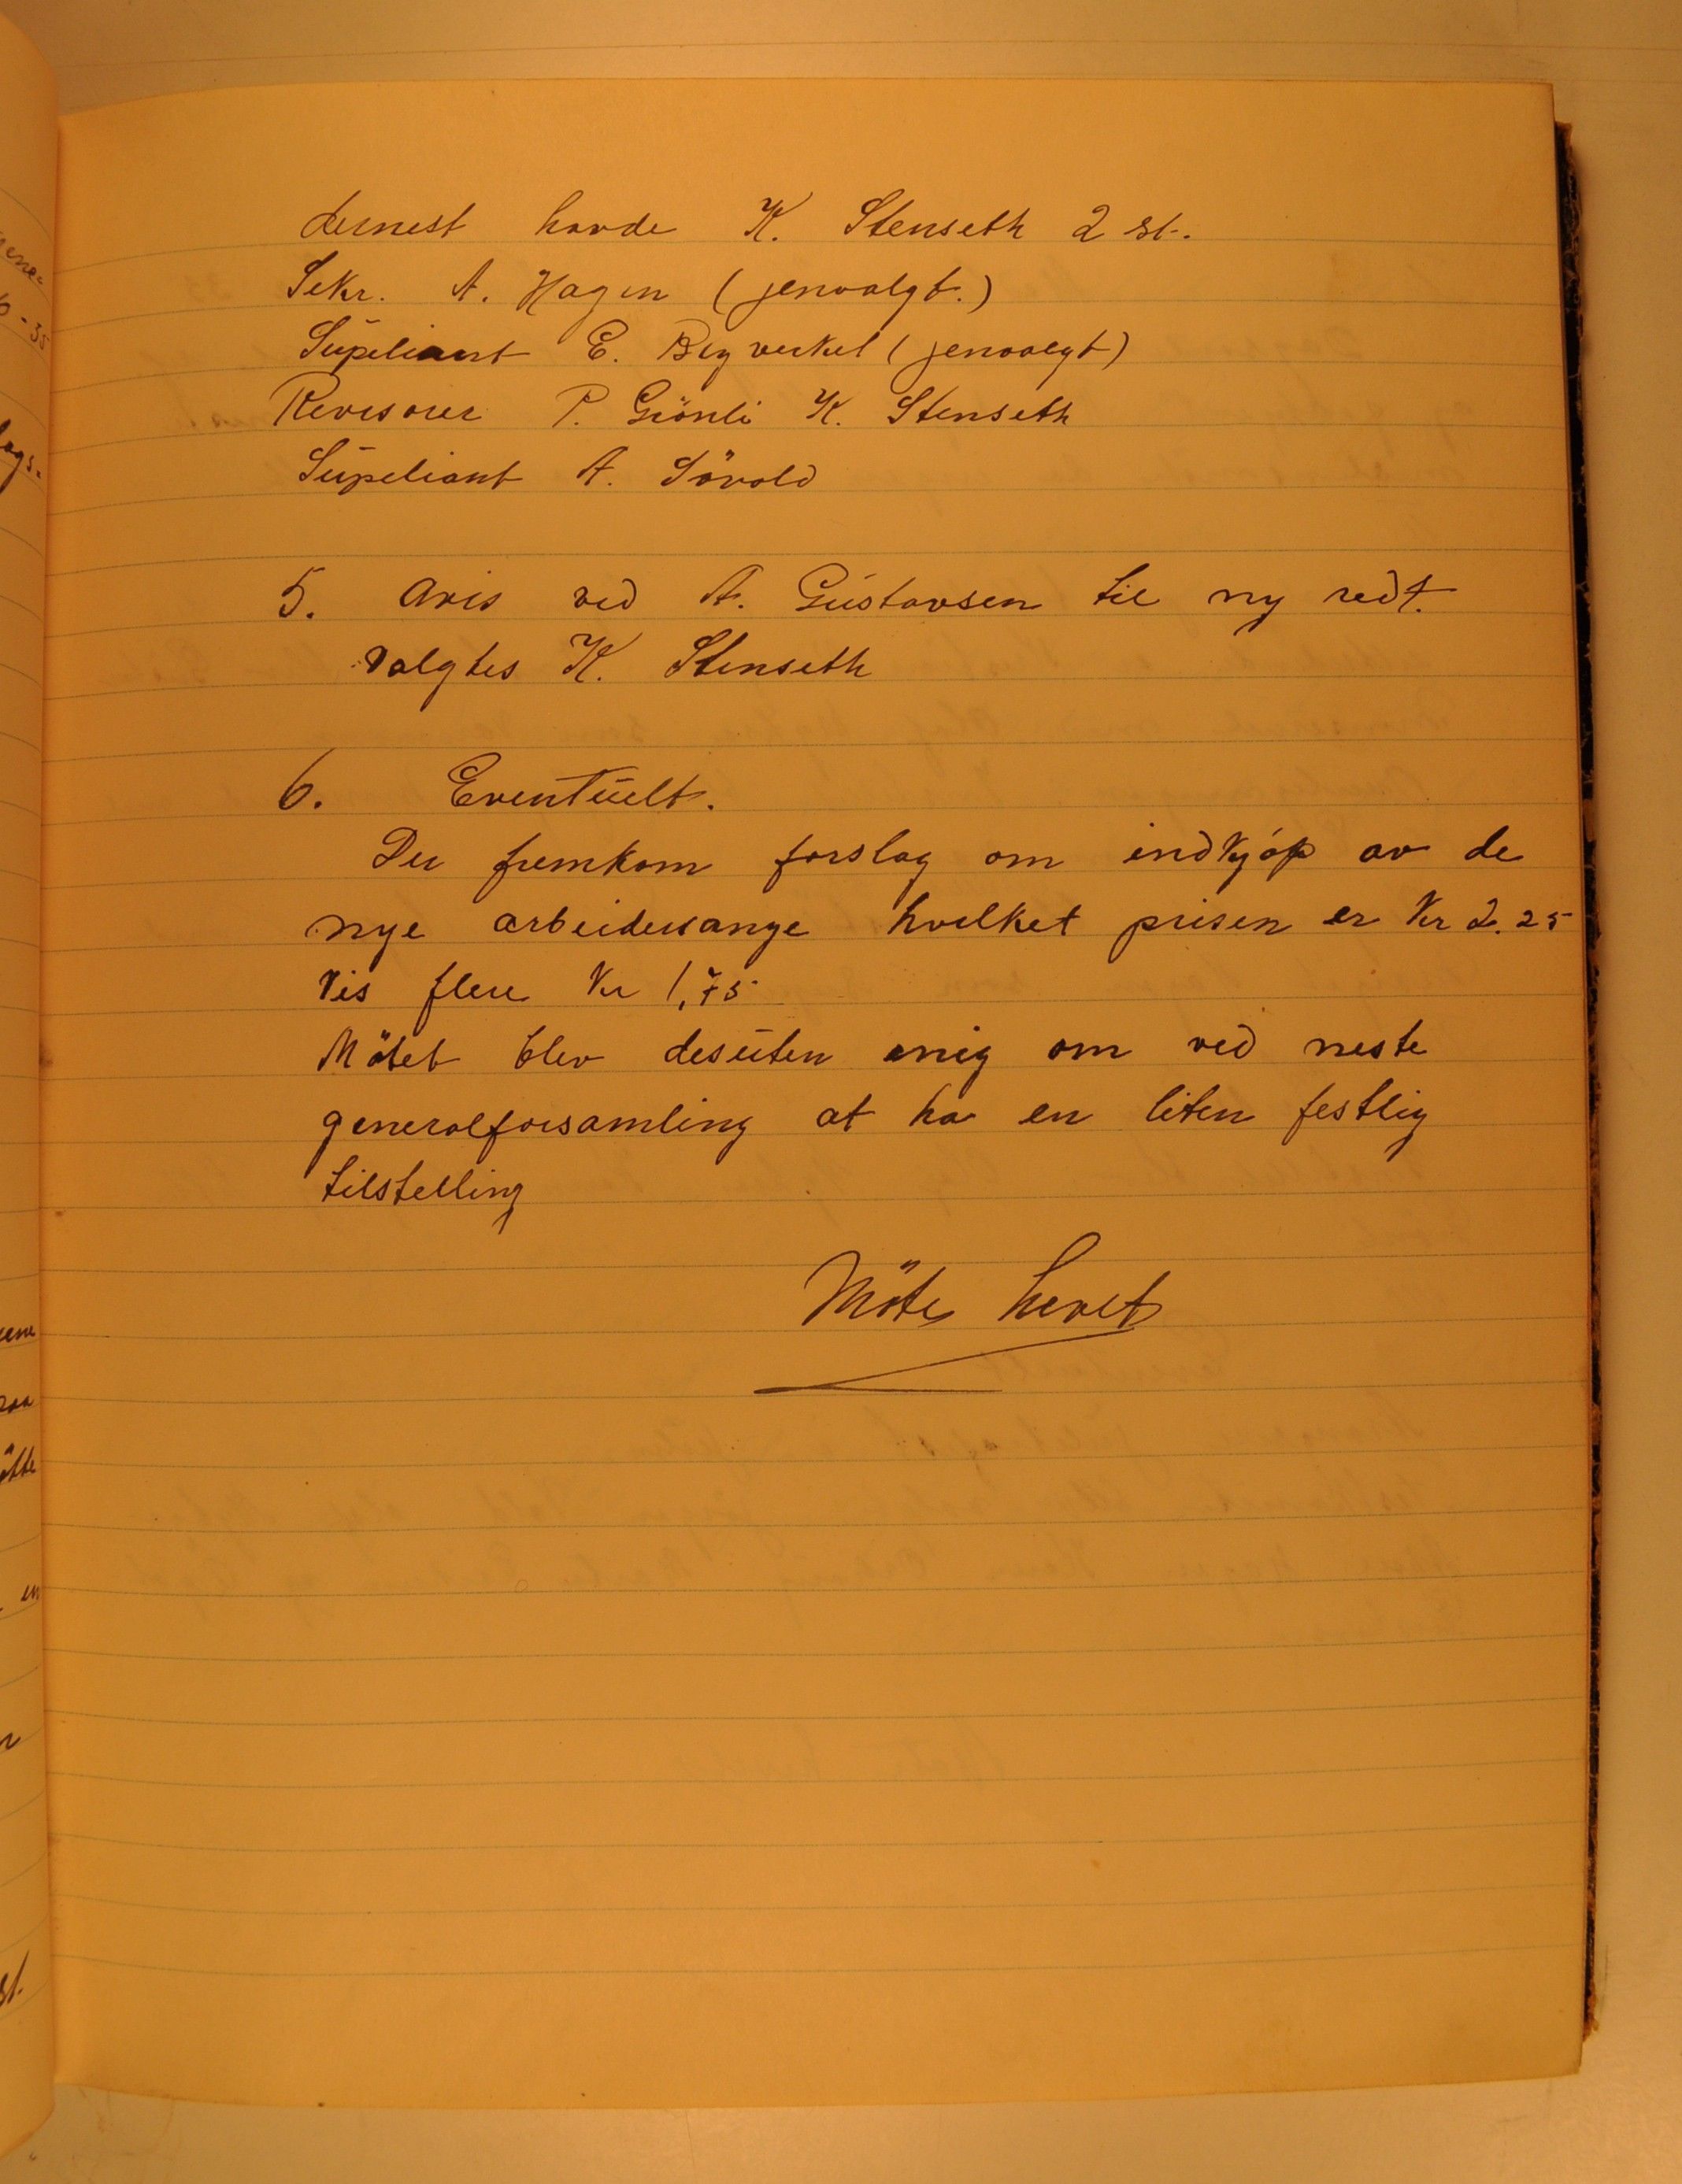 dernest havde K. Stenseth 2 st.
Sekr. A. Hagen (jenvalgt.)
Supeliant E. Bergverkel (jenvalgt)
Revisorer P. Grönli K. Stenseth
Supeliant A. Sövold
5. Avis ved A. Gustavsen til ny redt.
valgtes K. Stenseth
6. Eventuelt.
Der fremkom forslag om indkjøp av de
nye arbeidersange hvilket prisen er Kr 2.25
Vis flere Kr 1,75
Mötet blev desuten enig om ved neste
generalforsamling at ha en liten festlig
tilstelling
Möte hevet